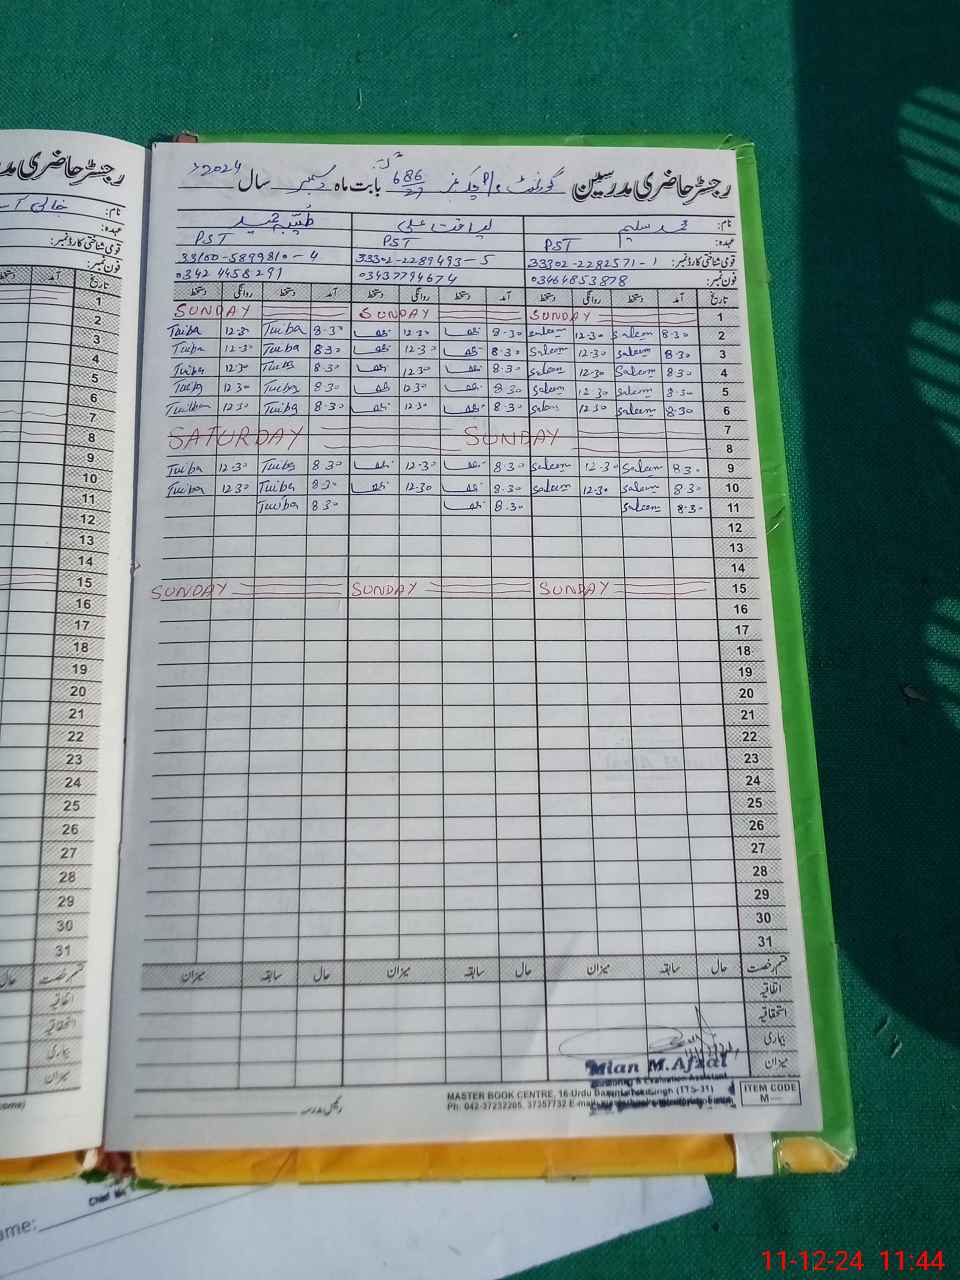 رجسٹر حاضری مدرسین گورنمنٹ پرائمری چک نمبر 686/27 بابت ماہ دسمبر سال 2024
نام: محمد سلیم لیاقت علی طیبہ حمید
عہدہ: PST PST PST
قومی شناختی کارڈ نمبر: 33302-2282571-1 33302-2289493-5 33100-5899810-4
فون نمبر: 03464653878 03437794674 0342 4458291
تاریخ آمد دستخط روانگی دستخط آمد دستخط روانگی دستخط آمد دستخط روانگی دستخط
SUNDAY SUNDAY SUNDAY 1
Tuiba 12-30 Tuiba 8-30 12-30 8-30 Saleem 12-30 Saleem 8-30 2
Tuiba 12-30 Tuiba 8-30 12-30 8-30 Saleem 12-30 Saleem 8-30 3
Tuiba 12-30 Tuiba 8-30 12-30 8-30 Saleem 12-30 Saleem 8-30 4
Tuiba 12-30 Tuiba 8-30 12-30 8-30 Saleem 12-30 Saleem 8-30 5
Tuiba 12-30 Tuiba 8-30 12-30 8-30 Saleem 12-30 Saleem 8-30 6
SATURDAY SUNDAY 7
8
Tuiba 12-30 Tuiba 8-30 12-30 8-30 Saleem 12-30 Saleem 8-30 9
Tuiba 12-30 Tuiba 8-30 12-30 8-30 Saleem 12-30 Saleem 8-30 10
Tuiba 8-30 8-30 Saleem 8-30 11
12
13
14
SUNDAY SUNDAY SUNDAY 15
16
17
18
19
20
21
22
23
24
25
26
27
28
29
30
31
قسم رخصت حال سابقہ میزان حال سابقہ میزان حال سابقہ میزان
اتفاقیہ
استحقاقیہ
بیماری
میزان
Mian M.Afzal
Monitoring & Evaluation Assistant
رئیس مدرسہ
MASTER BOOK CENTRE, 16-Urdu
Ph: 042-37232205, 37357732 E-mail:
ITEM CODE
M—
رجسٹر حاضری مد
نام:
عہدہ:
قومی شناختی کارڈ نمبر:
فون نمبر:
تاریخ آمد دستخط
1
2
3
4
5
6
7
8
9
10
11
12
13
14
15
16
17
18
19
20
21
22
23
24
25
26
27
28
29
30
31
قسم رخصت حال
اتفاقیہ
استحقاقیہ
بیماری
میزان
ame:
11-12-24 11:44